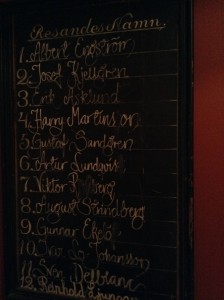 Resandes Namn.
1. Albert Engström
2. Josef Kjellgren
3. Erik Asklund
4. Harry Martinson
5. Gustaf Sandgren
6. Artur Lundqvist
7. Viktor
8. August Strindberg
9. Gunnar Ekelöf
10. Ivar Lo Johansson
11. Sven Delblanc
12. Reinhold Ljunggren